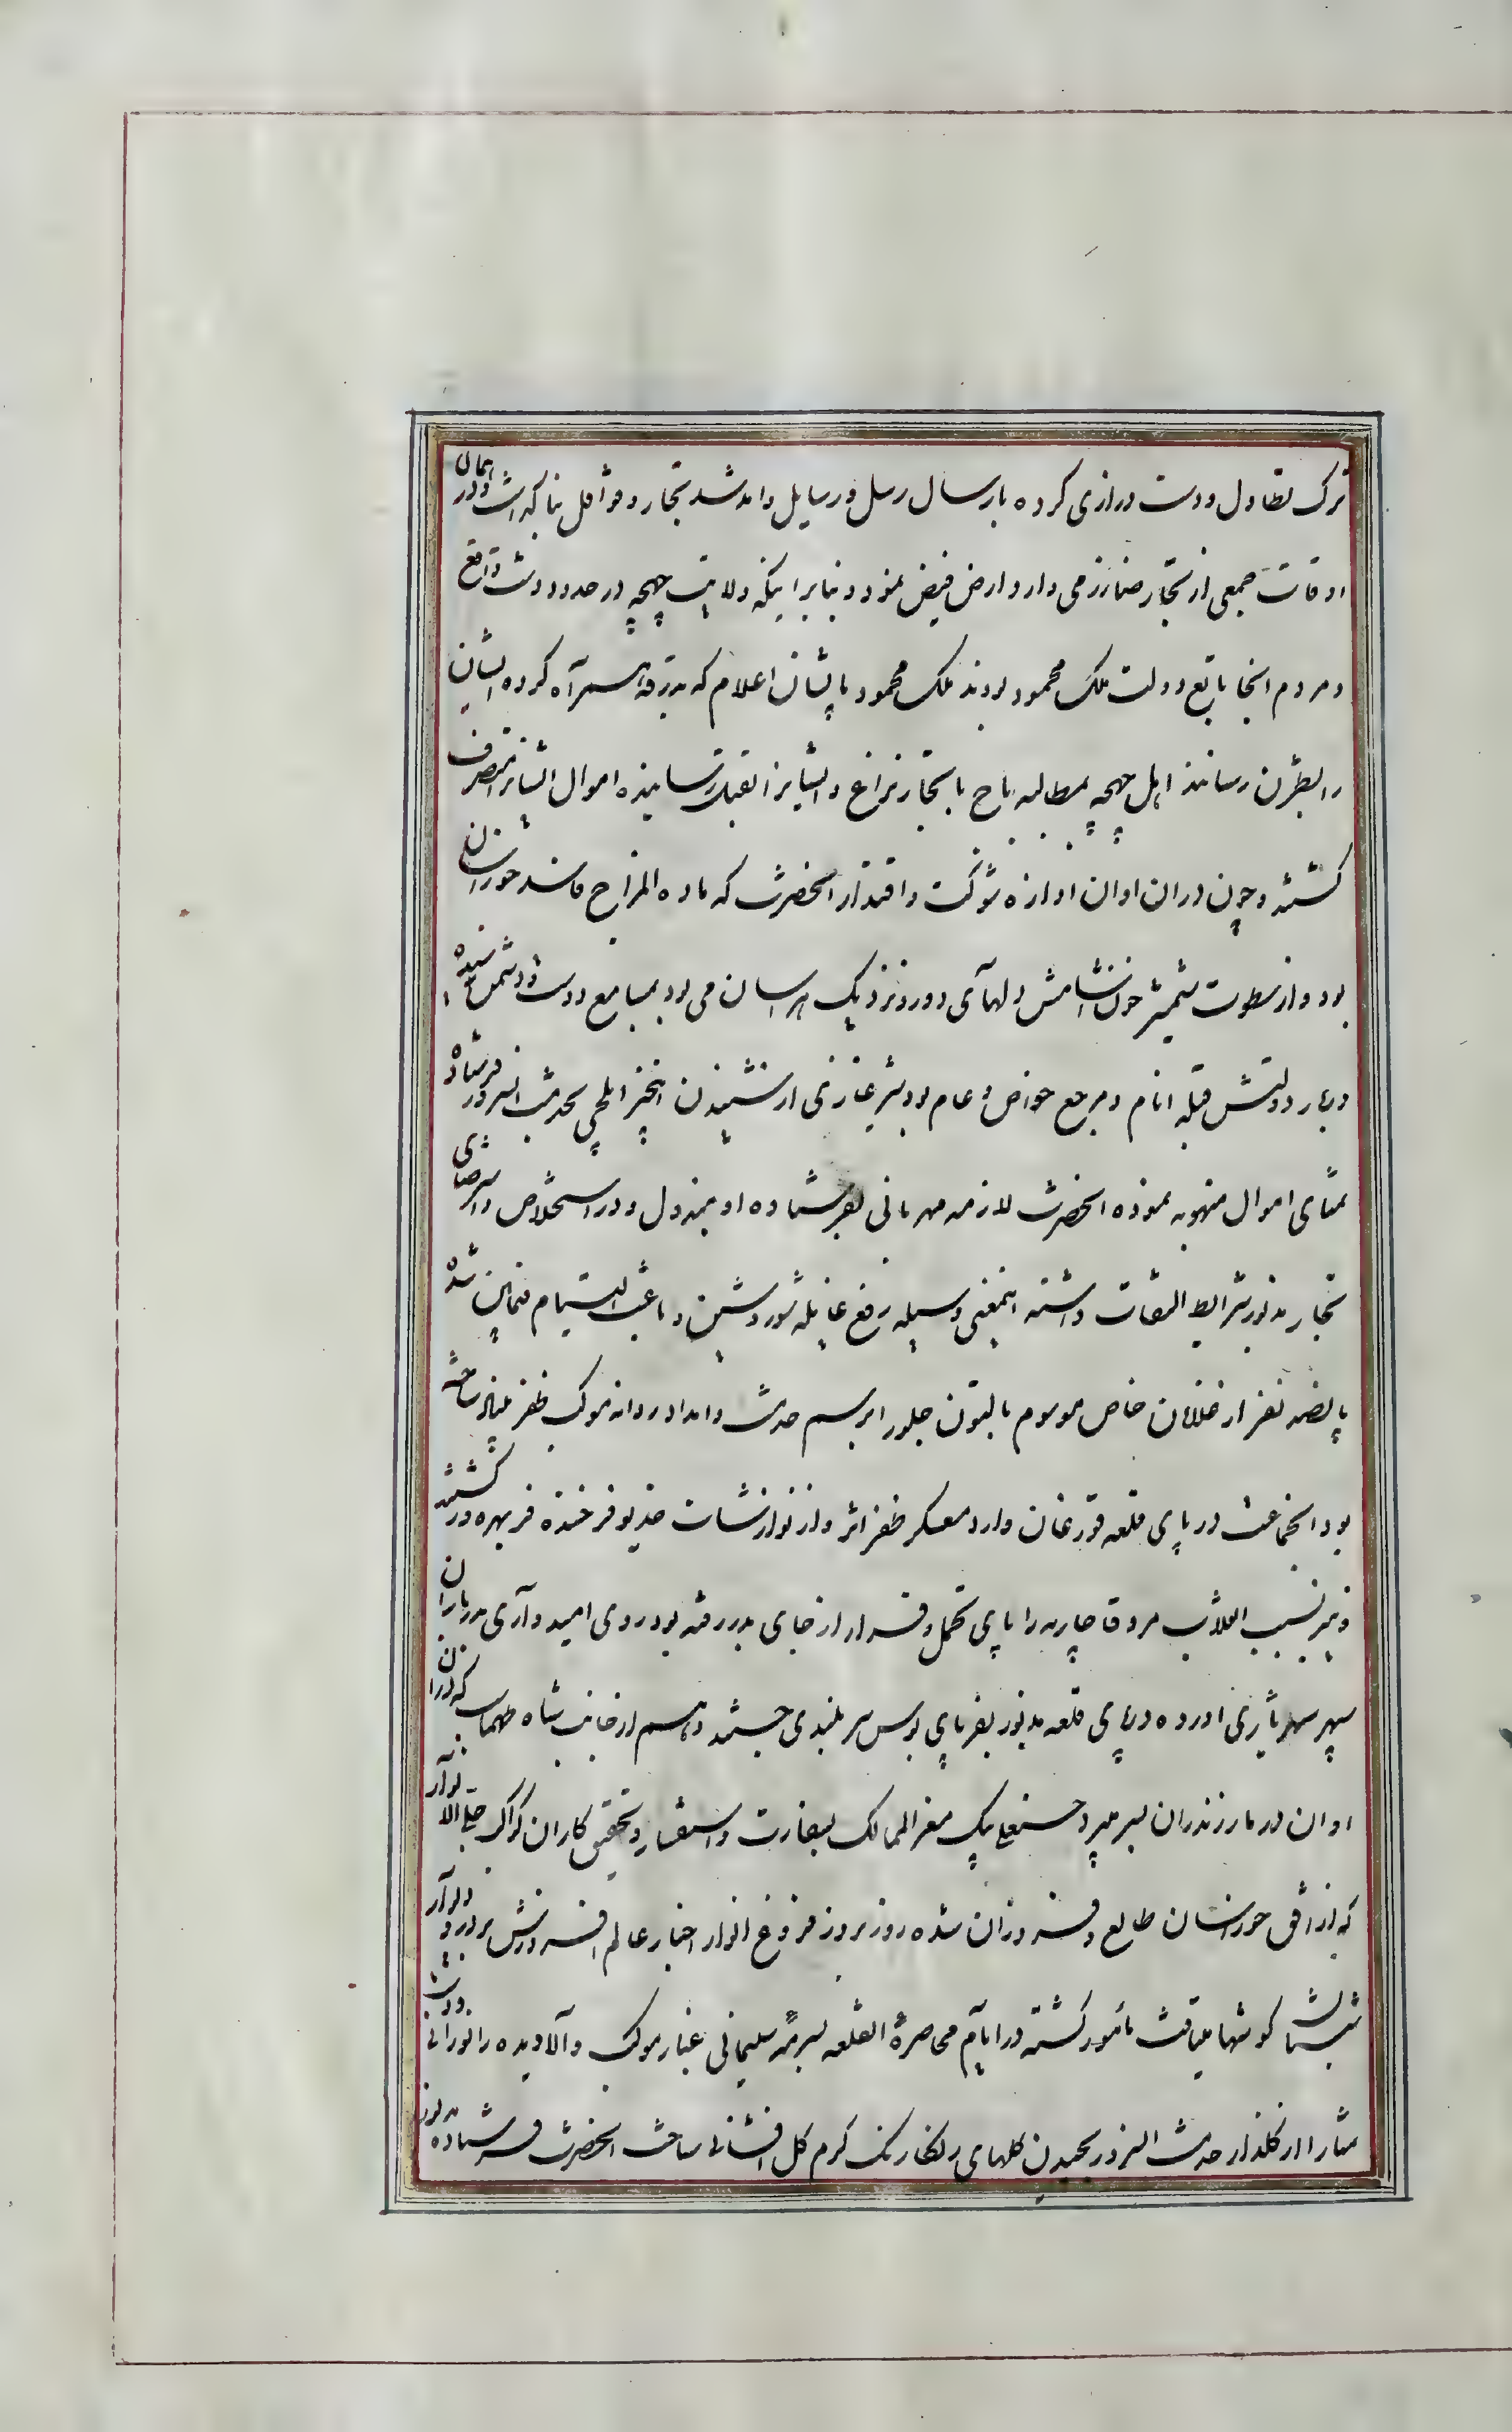 ترک تطاول و دست درازی کرده بارسال رسل و رسایل و امد شد تجار و قوافل بنا کذاشت و در همان
اوقات جمعی از تجار خوارزمی وارد ارض فیض نمود و بنابر اینکه ولایت چهچه در حدود دشت واقع
و مردم انجا تابع دولت ملک محمود بودند ملک محمود بایشان اعلام که بدرقه همراه کرده ایشان
را بطژن رسانند اهل چهچه بمطالبه باج با تجار نزاع و ایشانرا بقتل رسانیده اموال ایشانرا متصرف
کشتند و چون دران اوان اوازه شوکت و اقتدار انحضرت که ماده المزاج فاسد خوراسان
بود و از سطوت شمشیر خون اشامش دلهای دور و نزدیک هراسان می بود بمسامع دوست و دشمن رسیده
دربار دولتش قبله انام و مرجع خواص و عام بود شیر غازی از شنیدن اینخبر ایلچی بخدمت انسرور فرستاده
تمنای اموال منهوبه نموده انحضرت لازمه مهربانی بفرستاده او مبذول و در استخلاص و استرضای
تجار مذکور شرایط التفات داشته اینمعنی وسیله رفع غایله شور و شین و باعث التیام فیمابین شده
پانصد نفر از غلامان خاص موسوم بالتون جلو را برسم خدمت و امداد روانه موکب ظفر بنیاد ساخته
بود انجماعت در پای قلعه قورغان وارد معسکر ظفر اثر و از نوازشات خدیو فرخنده فر بهره‌ور کشتند
و نیز بسبب انقلاب مرو قاجاریه را پای تحمل و قرار از جای بدر رفته بود روی امیدواری بدربار ان
سپهر سروری اورده در پای قلعه مذکور بفر پای بوس سر بلندی جستند و هم از جانب شاه طهماسب که دران
اوان در مازندران بسر میبرد حسنعلی بیک معیر الممالک بسفارت و استفسار و تحقیق کار ان کوکب جلی الانوار
که از افق خوراسان طالع و فروزان شده روز بروز فروغ انوار اخبار عالم افروزش بر در و دیوار
شبستان کوشها میتافت مامور کشته در ایام محاصرۀ انقلعه بسرمه سلیمانی غبار موکب والا دیده را نورانی
تمنا را از کلزار خدمت انسرور بچیدن کلهای رنکارنک کرم کل افشانی ساخت انحضرت فرستاده مذکور